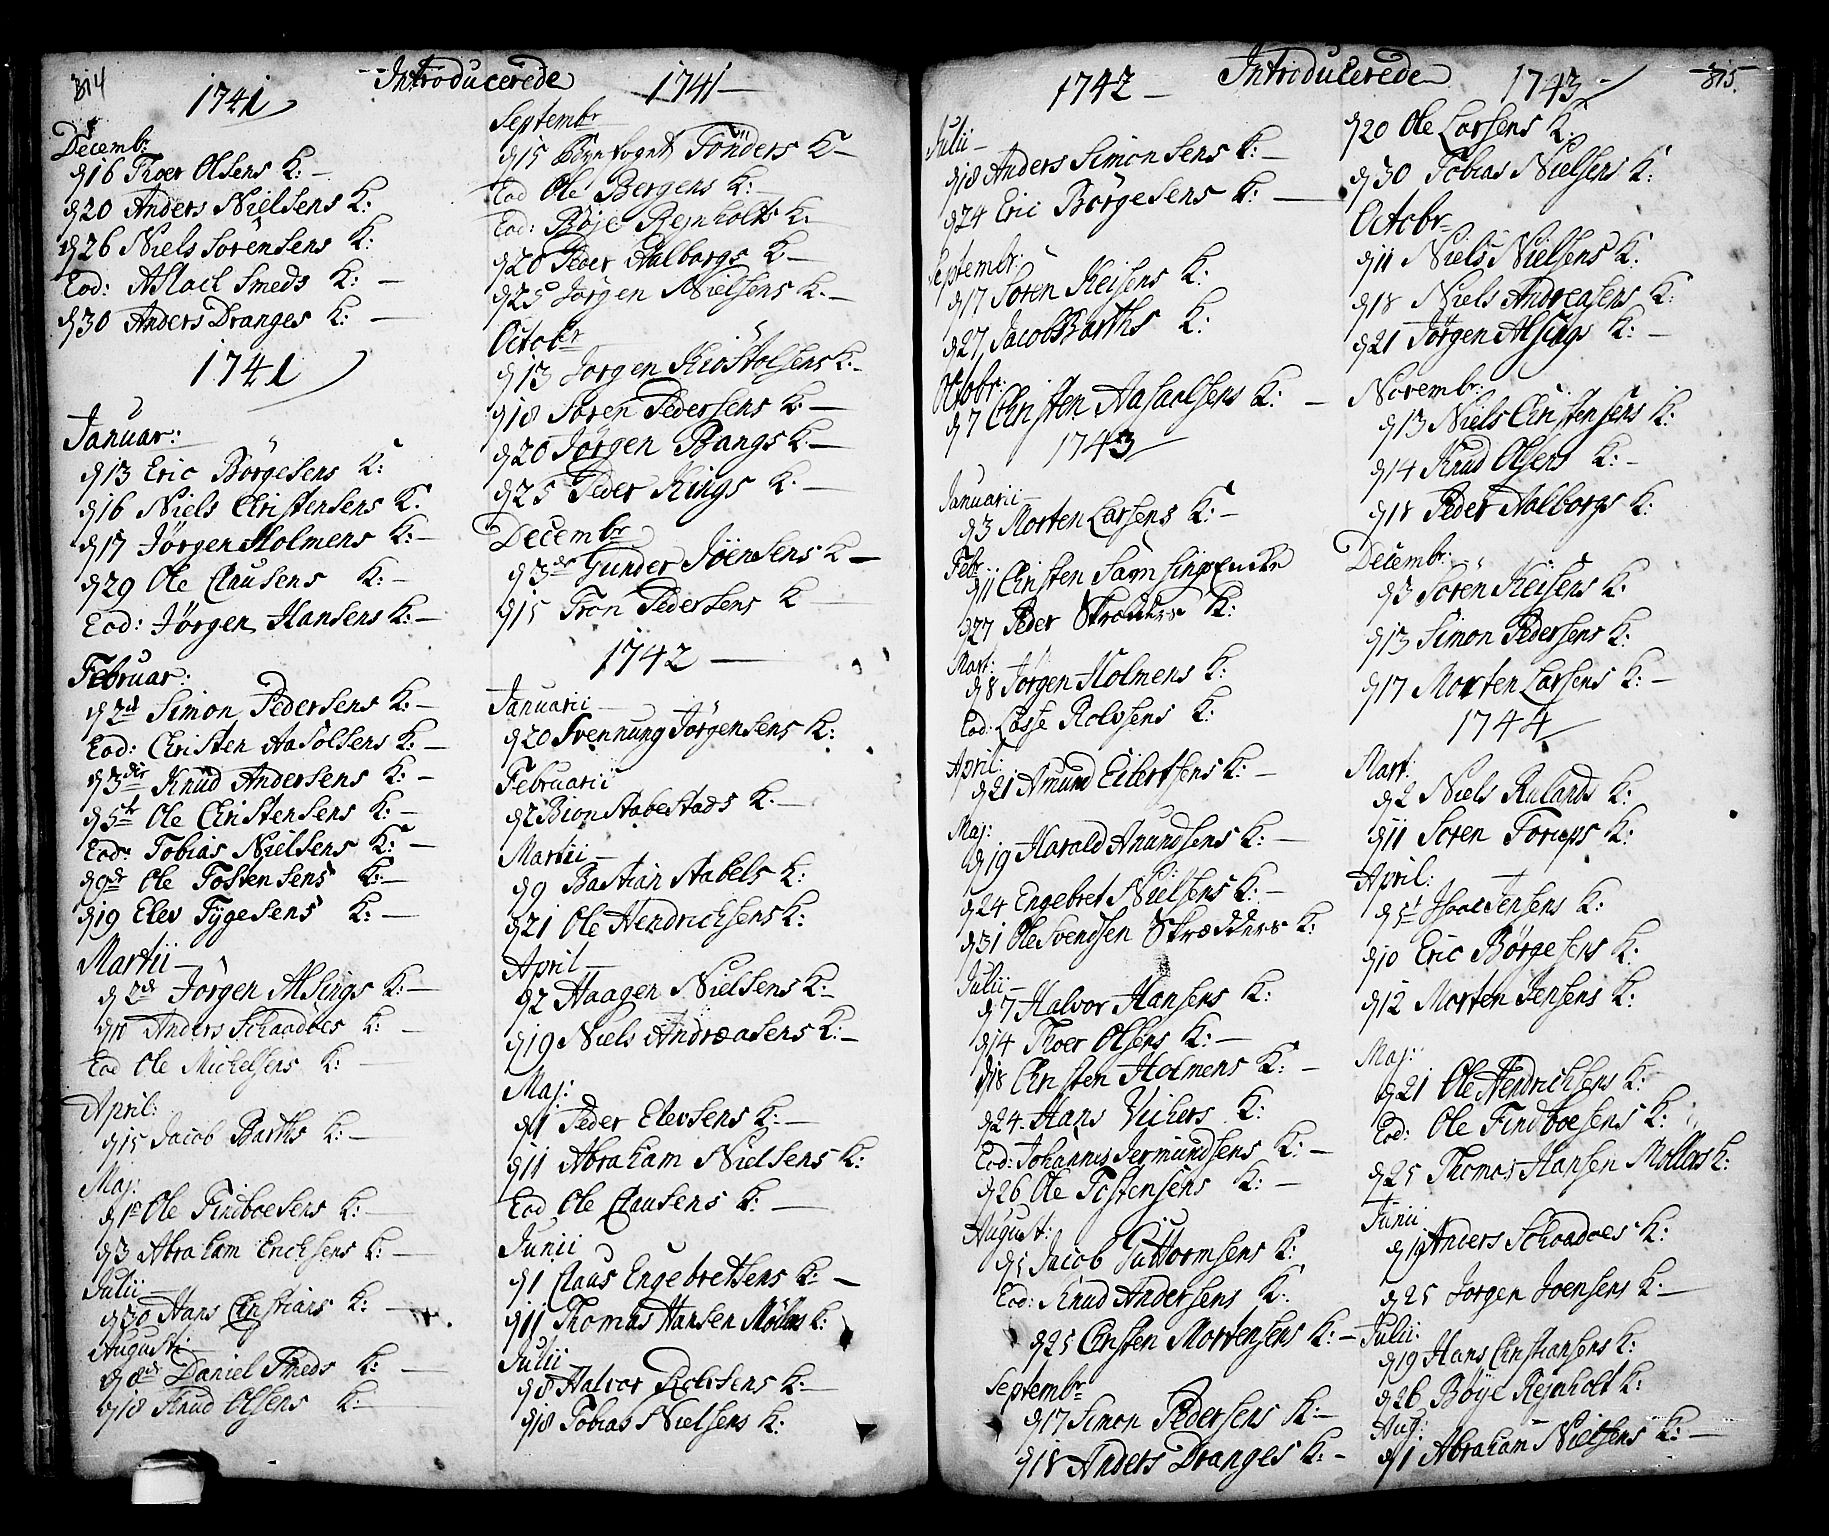 814
Introducerede
1741
1741
Decemb:
d 16 Thoer Olsens K: -
d 20 Anders Nielsens K:
d 26 Niels Sörensens K:
Eod: Aslach Smeds K: -
d 30 Anders Dranges K: -
1741
Januar:
d 13 Eric Börgesens K:
d 16 Niels Christensens K.
d 17 Jörgen Holmens K: -
d 29 Ole Clausens K: -
Eod: Jörgen Hansens K: -
Februar:
d 2d Simon Pedersens K: -
Eod: Christen Aasolsens K: -
d 3die Knud Andersens K: -
d 5t Ole Christensens K: -
Eod: Tobias Nielsens K: -
d 9de Ole Tostensens K: -
d 19 Elev Tygesens K: -
Martii -
d 2d Jörgen Alsings K: -
d 11 Anders Schaadoes K: -
Eod Ole Michelsens K: -
April:
d 15 Jacob Barths K: -
Maj:
d 1e Ole Findboesens K: -
d 3 Abraham Erichsens K: -
Julii
d 30 Hans Christians K: -
Augusti
d 8de Daniel Smeds K: -
d 18 Knud Olsens K: -
Septembr
d 15 Byefogut Tönders K -
Eod Ole Bergens K: -
Eod: Böje Rejnholts K: -
d 20 Peder Aalborgs K -
d 25 Jörgen Nielsens K. -
Octobr
d 13 Jorgen Kiöstolsens K: -
d 18 Sören Pedersens K: -
d 20 Jörgen Bangs K -
d 25 Peder Kings K. -
Decembr
d 3de Gunder Joensens K -
d 15 Tron Pedersens K -
1742 -
Januarii -
d 20 Svennung Jörgensens K:
Februarii
d 2 Bion Stabestads K. -
Martii -
d 9 Bastian Stabels K:
d 21 Ole Hendrichsens K:
April -
d 2 Haagen Nielsens K -
d 19 Niels Andreasens K: -
Maj:
d 1 Peder Elevsens K: -
d 11 Abraham Nielsens K:
Eod Ole Clausens K: -
Junii
d 1 Claus Engebretsens K: -
d 11 Thomas Hansen Möllers K:
Julii -
d 8 Halvor Rolvsens K: -
d 18 Tobias Nielsens K:
Introducerede
815.
1742 -
1743 -
Julii -
d 18 Anders Simonsens K: -
d 24 Eric Börgesens K: -
Septembr:
d 17 Soren Keisens K:
d 27 Jacob Barths K:
Octobr:
d 7 Christen Aasaalsens K: -
1743
Januarii -
d 3 Morten Larsens K: -
Febr:
d 11 Christen K:
d 27 Peder Skrædders K:
Mart:
d 8 Jörgen Holmens K:
Eod: Lasse Rolvsens K:
April:
d 21 Amund Eilertsens K: -
Maj:
d 19 Harald Anundsens K: -
d 24 Engebret Nielsens K: -
d 31 Ole Svendsen Skrædders K:
Julii -
d 7 Halvor Hansens K:
d 14 Thoer Olsens K: -
d 18 Christen Holmens K: -
d 24. Hans Vichers K:
Eod: Johannes Jermundsens K: -
d 26 Ole Tostensens K: -
August:
d 5 Jacob Guttormsens K:
Eod: Knud Andersens K:
d 25 Christen Mortensens K: -
Septembr
d 17 Simon Pedersens K: -
d 18 Anders Dranges K: -
d 20 Ole Larsens K:
d 30 Tobias Nielsens K:
Octobr
d 11 Niels Nielsens K:
d 18 Niels Andreasens K:
d 21 Jörgen Alsings K: -
Novembr:
d 13 Niels Christensens K:
d 14 Knud Olsens K: -
d 18 Peder Aalborgs K:
Decembr:
d 3 Sören Keisens K:
d 13 Simon Pedersens K:
d 17 Morten Larsens K: -
1744
Mart:
d 2 Niels Rulands K:
d 11 Soren K:
April:
d 5t Jensens K:
d 10 Eric Börgesens K:
d 12 Morten Jensens K:
Maj:
d 21 Ole Hendrichsens K:
Eod: Ole Findboesens K:
d 25 Thomas Hansen Möllers K:
Junii
d 19 Anders Schaadoes K:
d 25 Jorgen Joensens K -
Julii:
d 19 Hans Christiansens K:
d 26 Böye Rejnholt K:
Aug:
d 1 Abraham Nielsens K: -